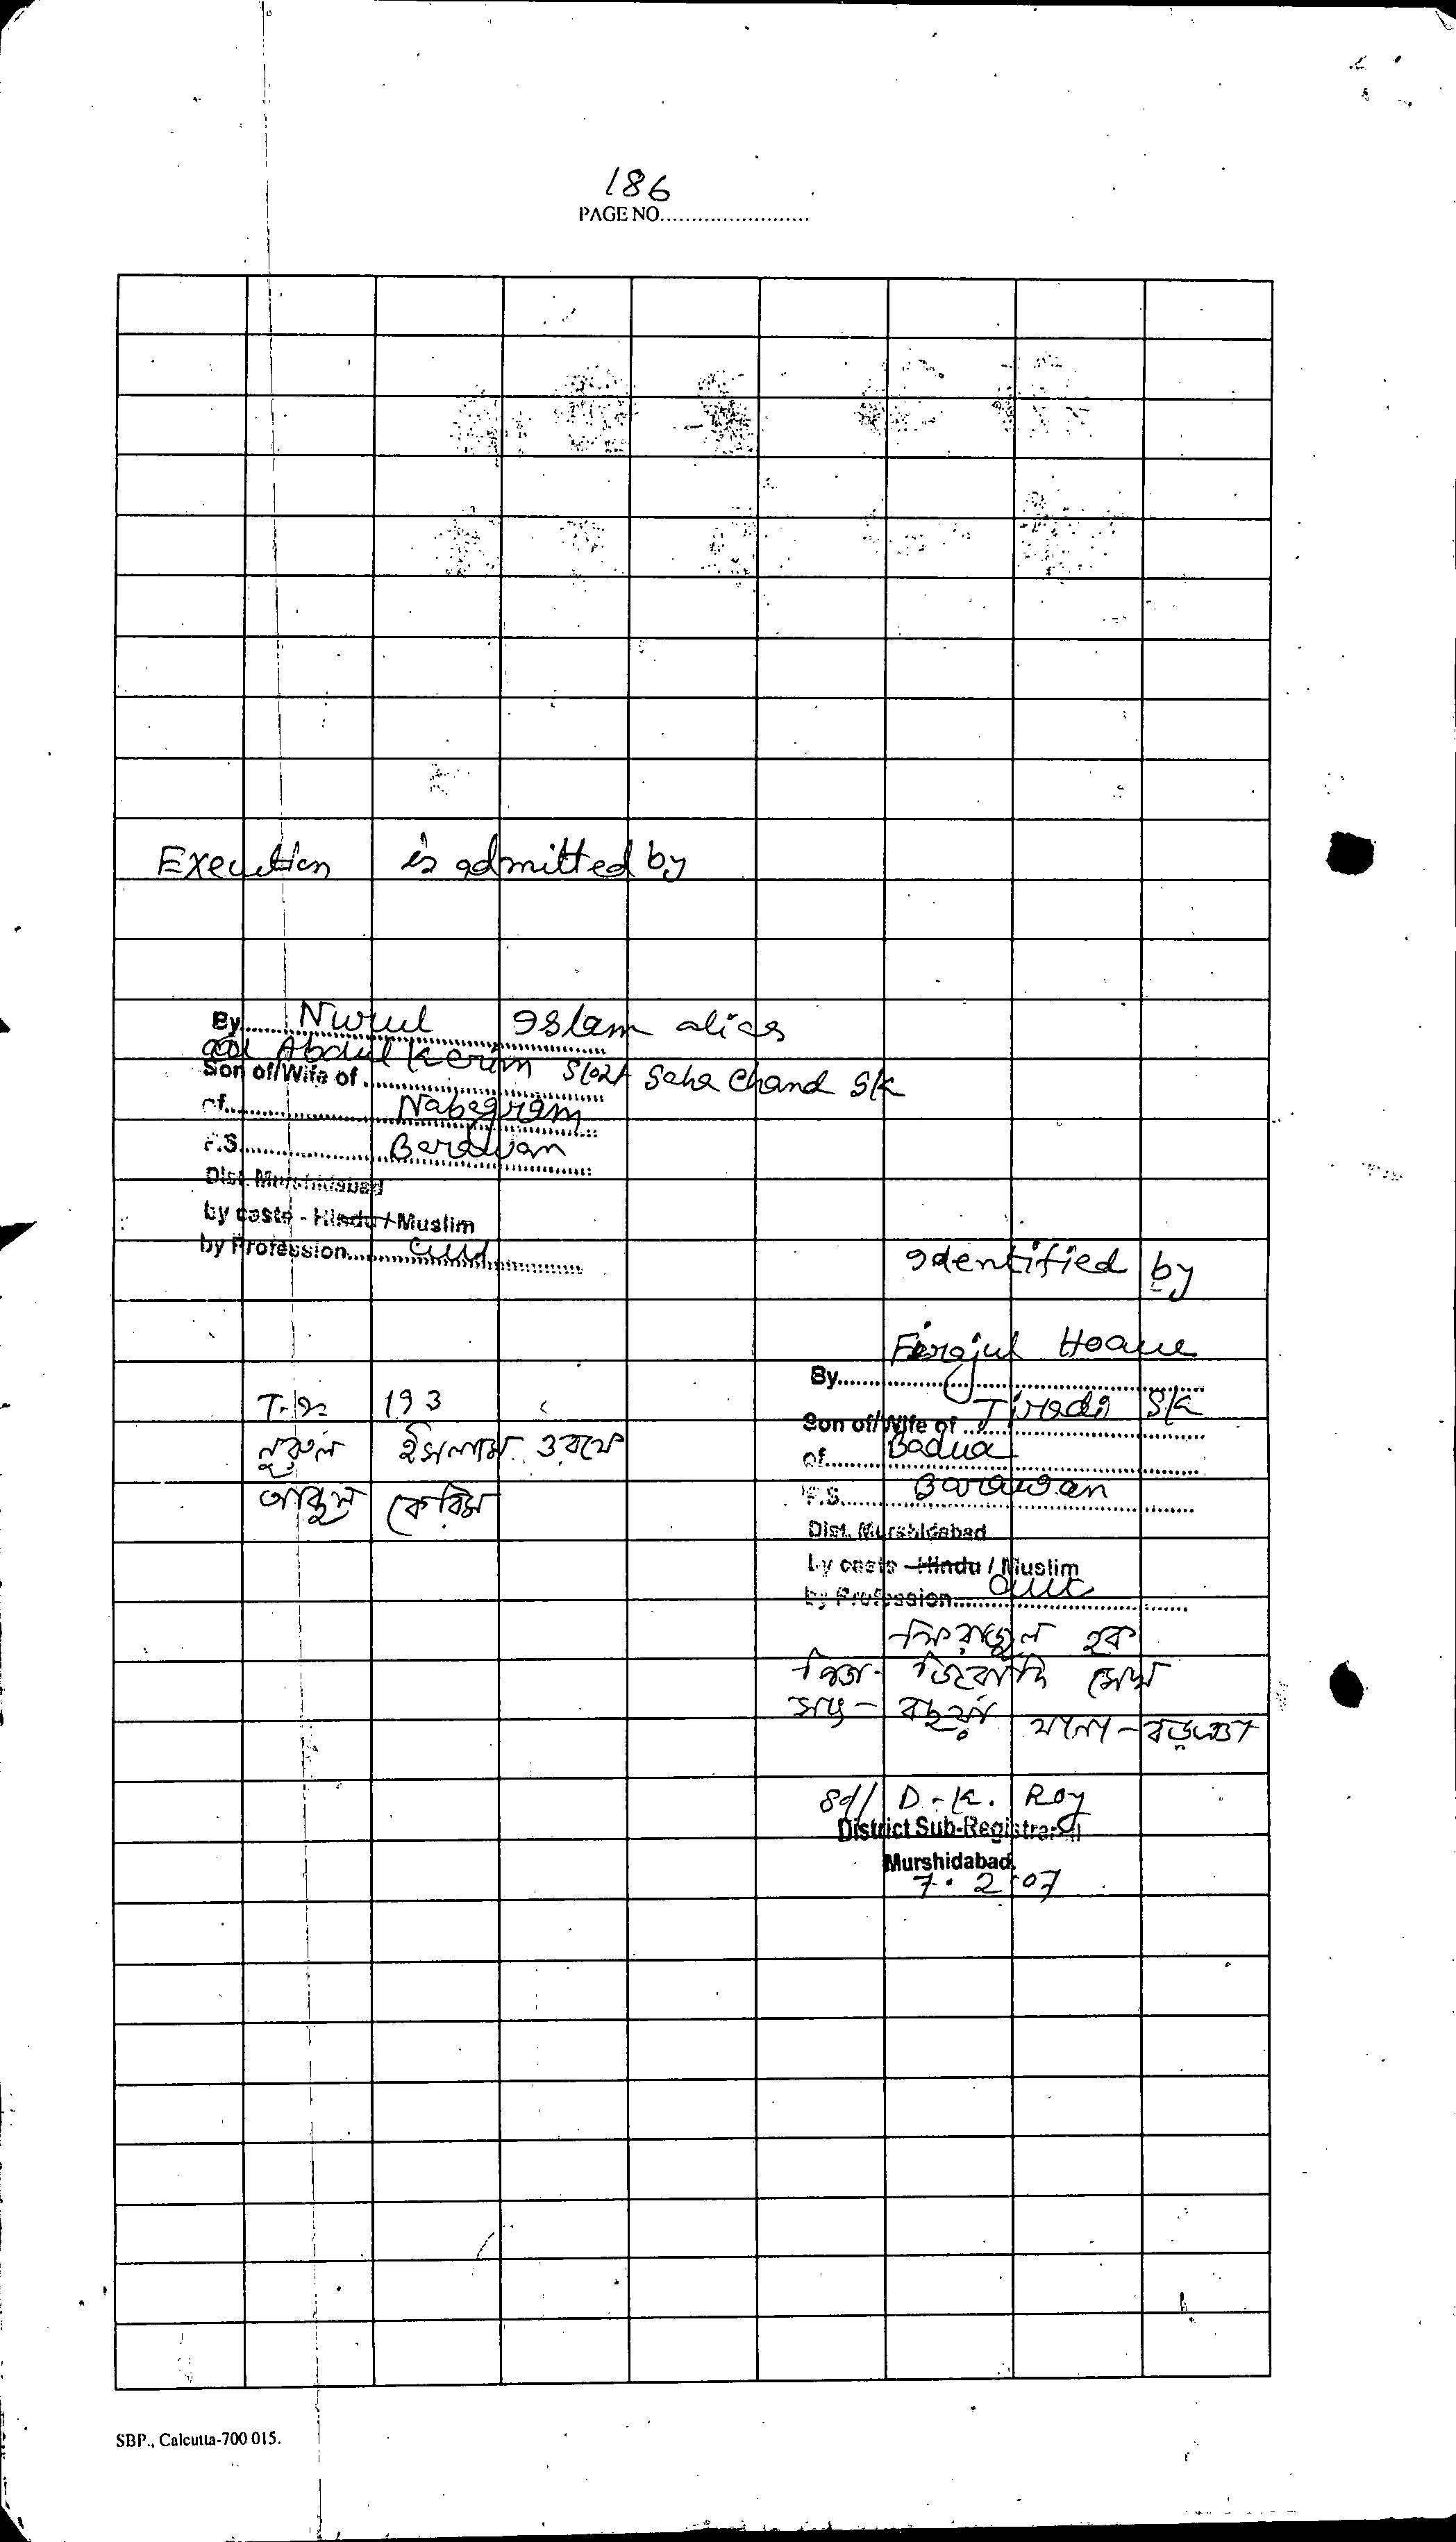 186
PAGE NO........................
Execution is admitted by
By Nurul Islam alias
Abdul Kerim S/o Lt Saha Chand Sk
Son of/Wife of
of Nabagram
P.S. Barawan
Dist. Murshidabad
by caste - Hindu / Muslim
by Profession
Identified by
Firajul Hoaue
By
Son of/Wife of Jiradi Sk
of Badua
P.S. Barawan
Dist. Murshidabad
by caste - Hindu / Muslim
by Profession
193
নুরুল ইসলাম ওরফে
আব্দুল কেরিম
ফিরাজুল হক
পিতা- জিরাদি সেখ
সাং - বদুয়া থানা - বড়ঞা
Sd// D. K. Roy
District Sub-Registrar-II
Murshidabad
7.2.07
SBP., Calcutta-700 015.